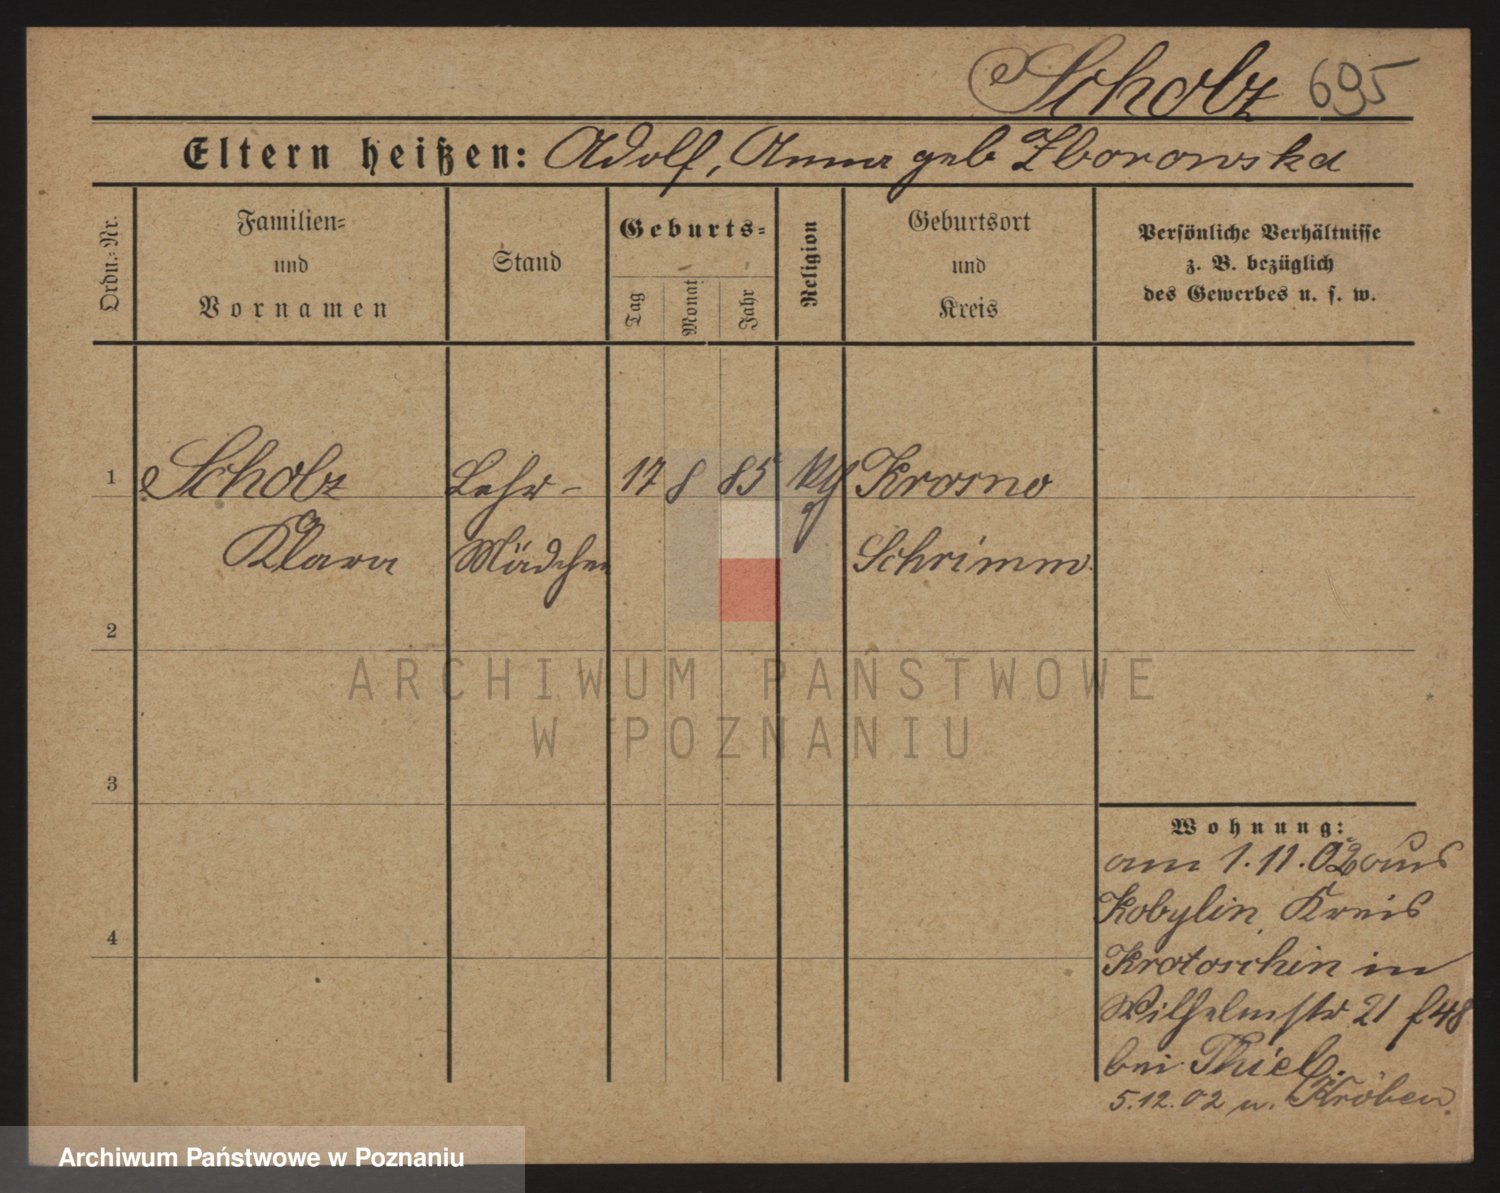 Scholz 695
Eltern heißen: Adolf, Anna geb Zborowska
Ordn.-Nr.
Familien-
und
Vornamen
Stand
Geburts-
Tag
Monat
Jahr
Religion
Geburtsort
und
Kreis
Persönliche Verhältnisse
z. B. bezüglich
des Gewerbes u. s. w.
1 Scholz Lehr- 17 8 85 Krosno
Klara Mädchen Schrimm
2
ARCHIWUM PAŃSTWOWE
W POZNANIU
3
Wohnung:
am 1.11.02 aus
Kobylin, Kreis
4
Krotoschin in
Wilhelmstr 21
bei Thiel.
5.12.02 n. Kröben.
Archiwum Państwowe w Poznaniu